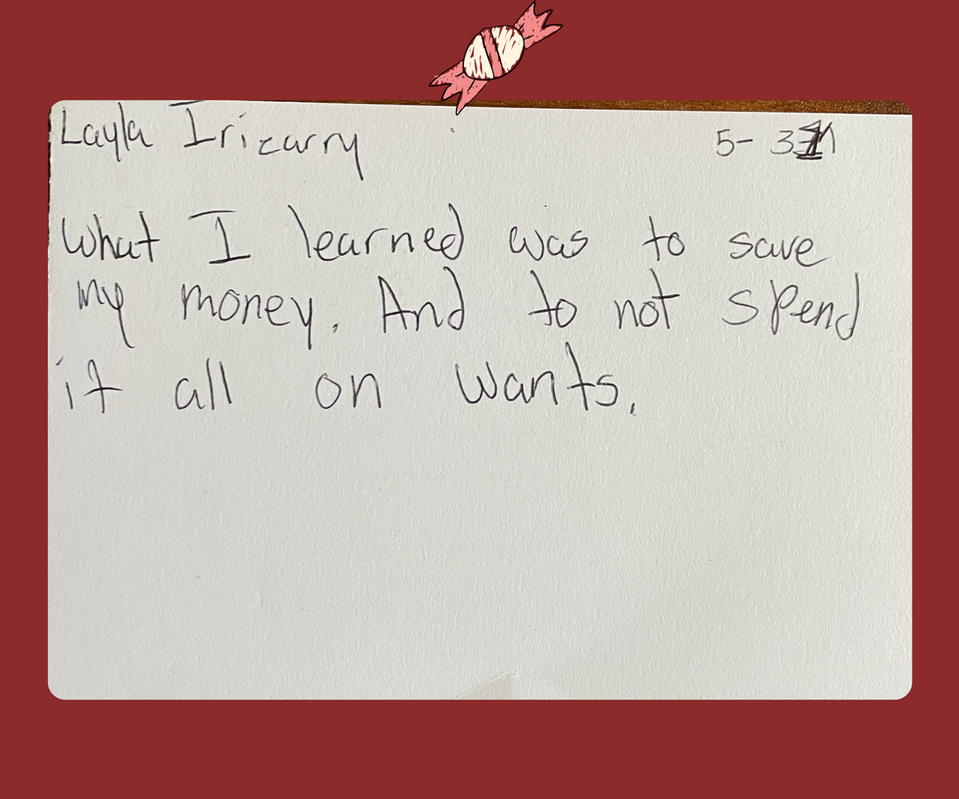 Layla Irizarry
5-3
What I learned was to save
my money. And to not spend
it all on wants.